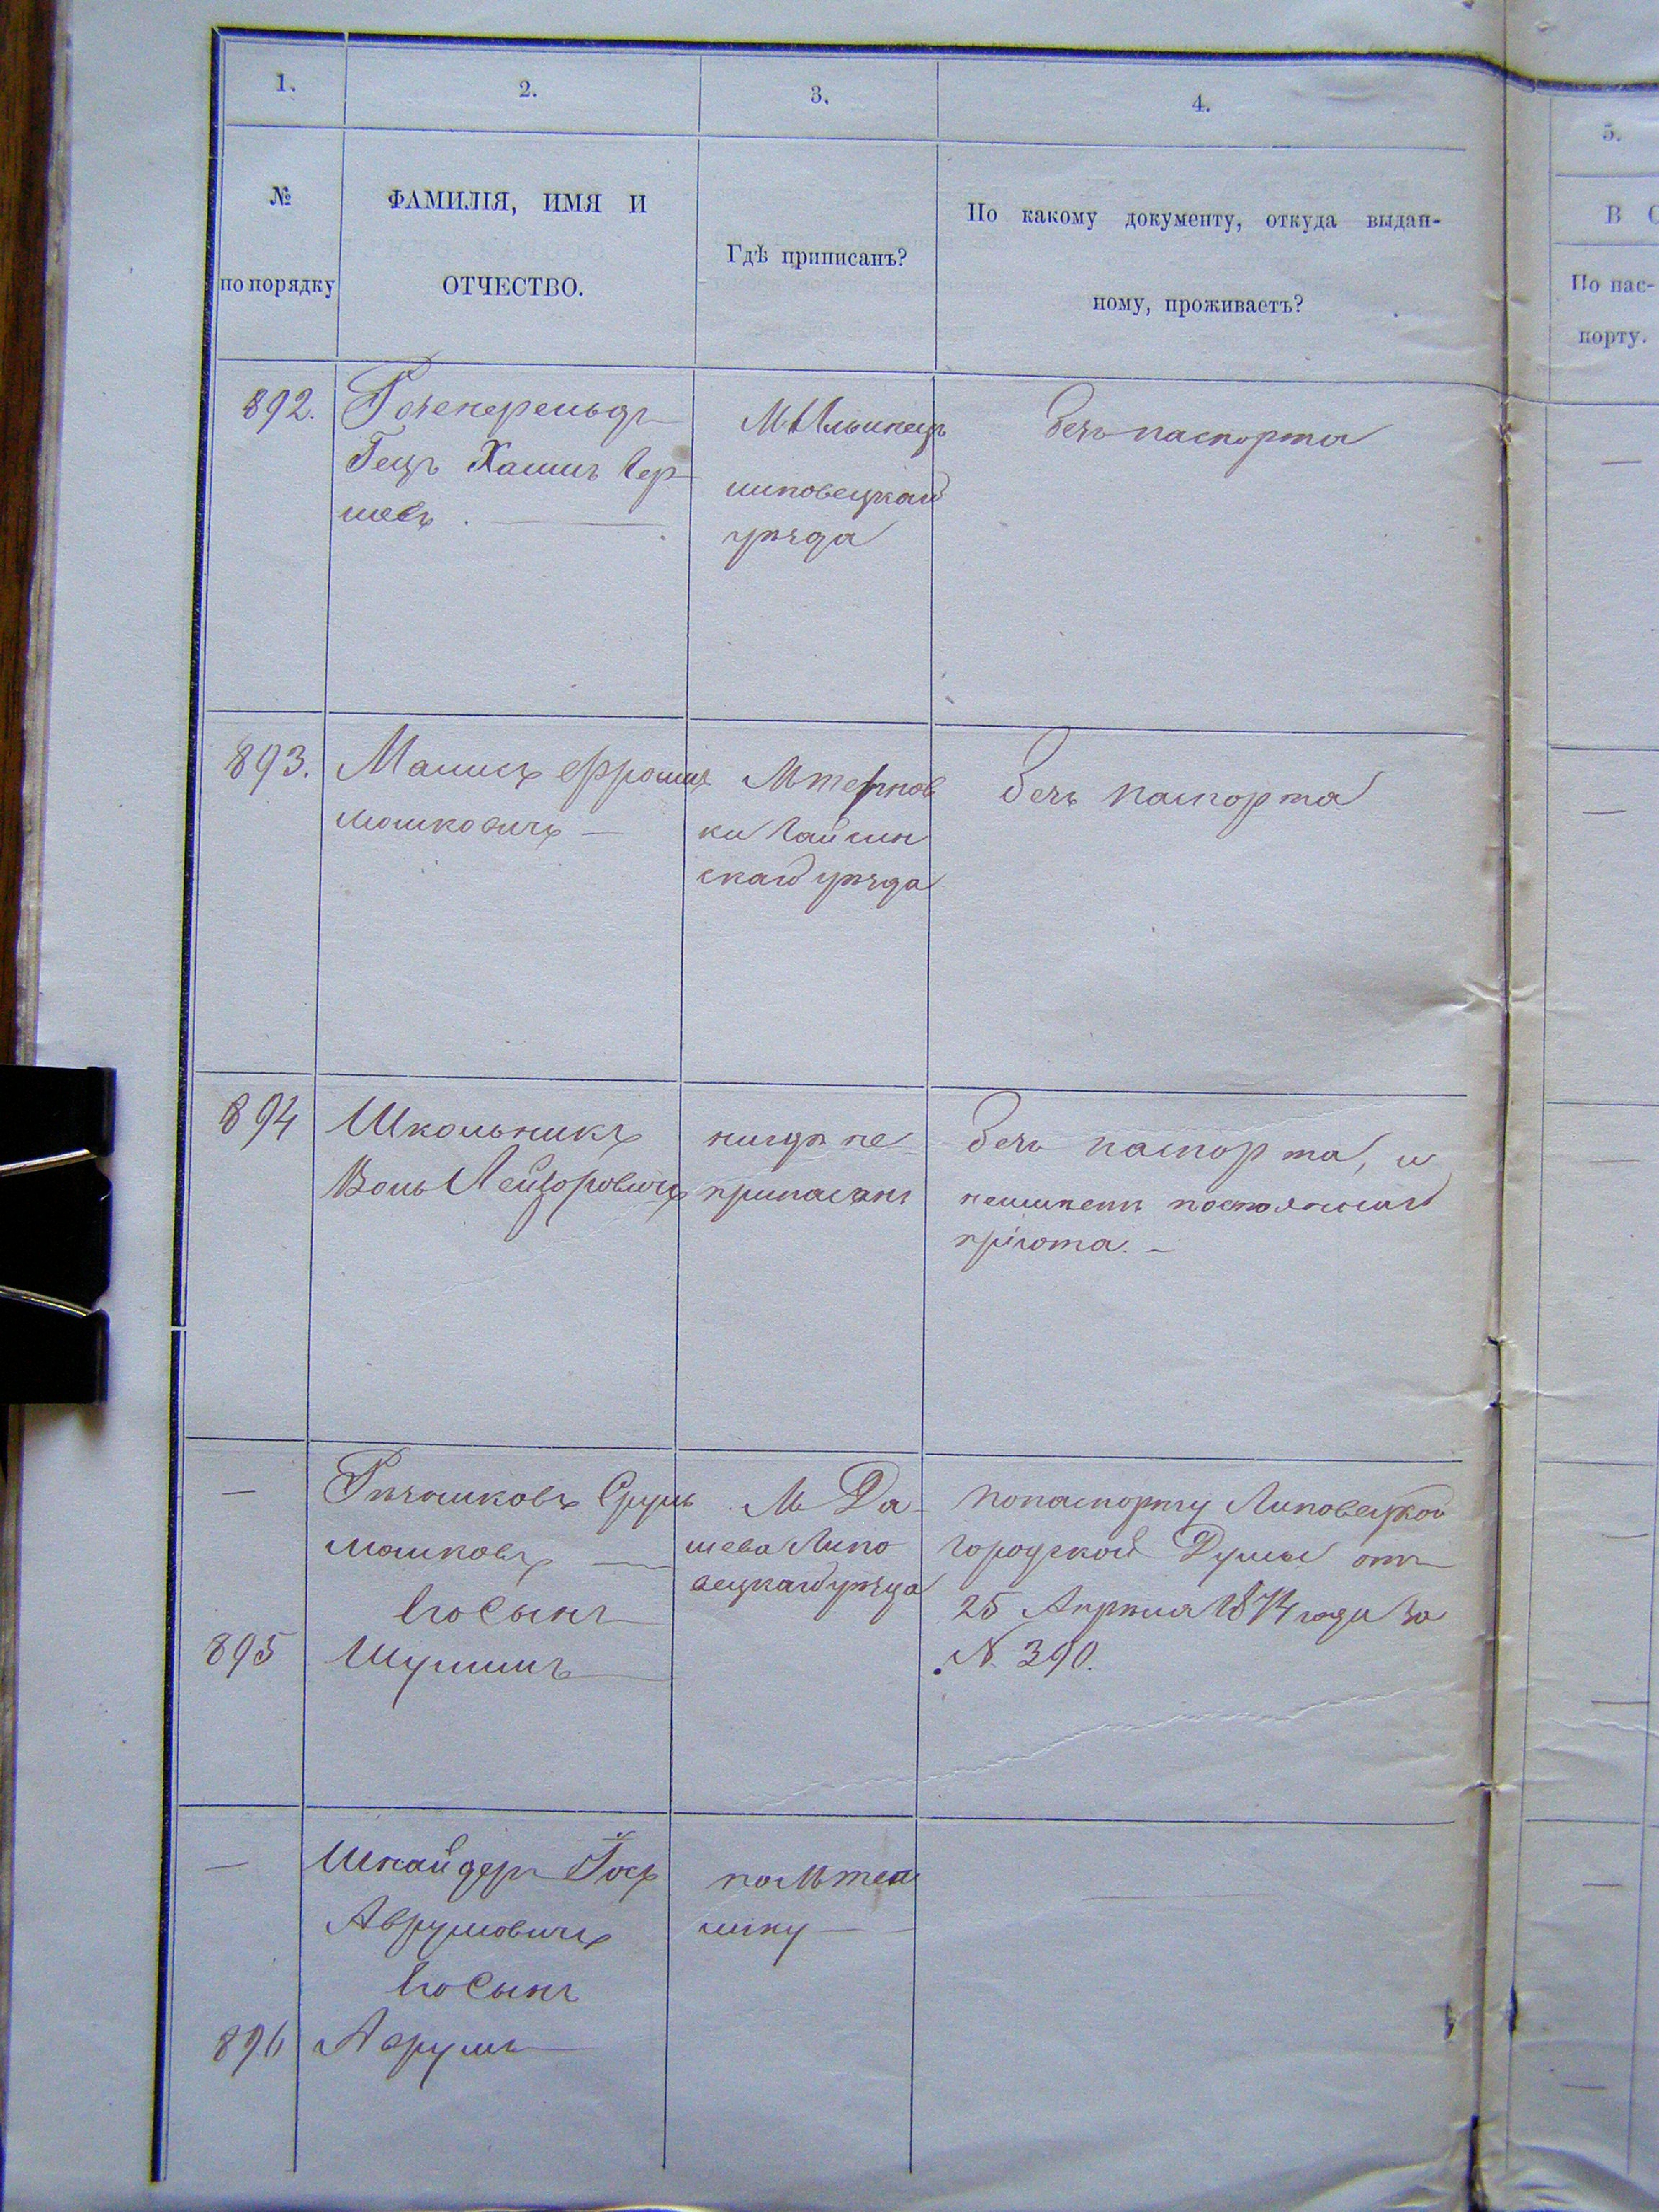 1.
2.
3.
4.
5.
№
по порядку
ФАМИЛІЯ, ИМЯ И
ОТЧЕСТВО.
Гдѣ приписанъ?
По какому документу, откуда выдан-
ному, проживаетъ?
В С
По пас-
порту.
892.
Гецъ Хаимъ Гер-
шовъ.
М. Ильинецъ
липовецкаго
уѣзда
безъ паспорта
893.
Мошковичъ —
М Терновки
ки Гайсин
скаго уѣзда
безъ паспорта
894
Школьникъ
Волько Лейзоровичъ
нигдѣ не
приписанъ
безъ паспорта, и
неимѣетъ постояннаго
пріюта. —
—
Срулъ
Мошковъ —
Его Сынъ
895
Шулимъ
М Да-
шева Липо
вецкаго уѣзда
по паспорту Липовецкой
Городской Думы отъ
25 Апрѣля 1874 года за
№ 390.
—
Шнайдеръ Іосъ
Аврумовичъ
Его Сынъ
896
Аврумъ
по М теп
лику —